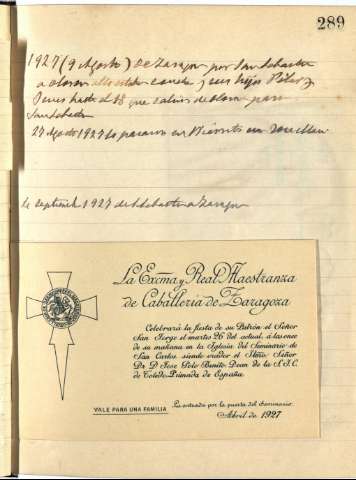 289
1927 (9 Agosto) de Zaragoza por San Sebastian
a Oloron
y sus hijos Pilar y
hasta el 18 que salimos de Oloron para
San Sebastian
27 Agosto 1927 lo pasaron en Biarritz
septiembre 1927 de S. Sebastian a Zaragoza
La Excma y Real Maestranza
de Caballería de Zaragoza
Celebrará la fiesta de su Patrón el Señor
San Jorge el martes 26 del actual, á las once
de su mañana en la Iglesia del Seminario de
San Carlos siendo orador el Iltmo Señor
Dr D Jose Polo Benito Dean de la S.I.C.
de Toledo Primada de España.
VALE PARA UNA FAMILIA
La entrada por la puerta del Seminario
Abril de 1927